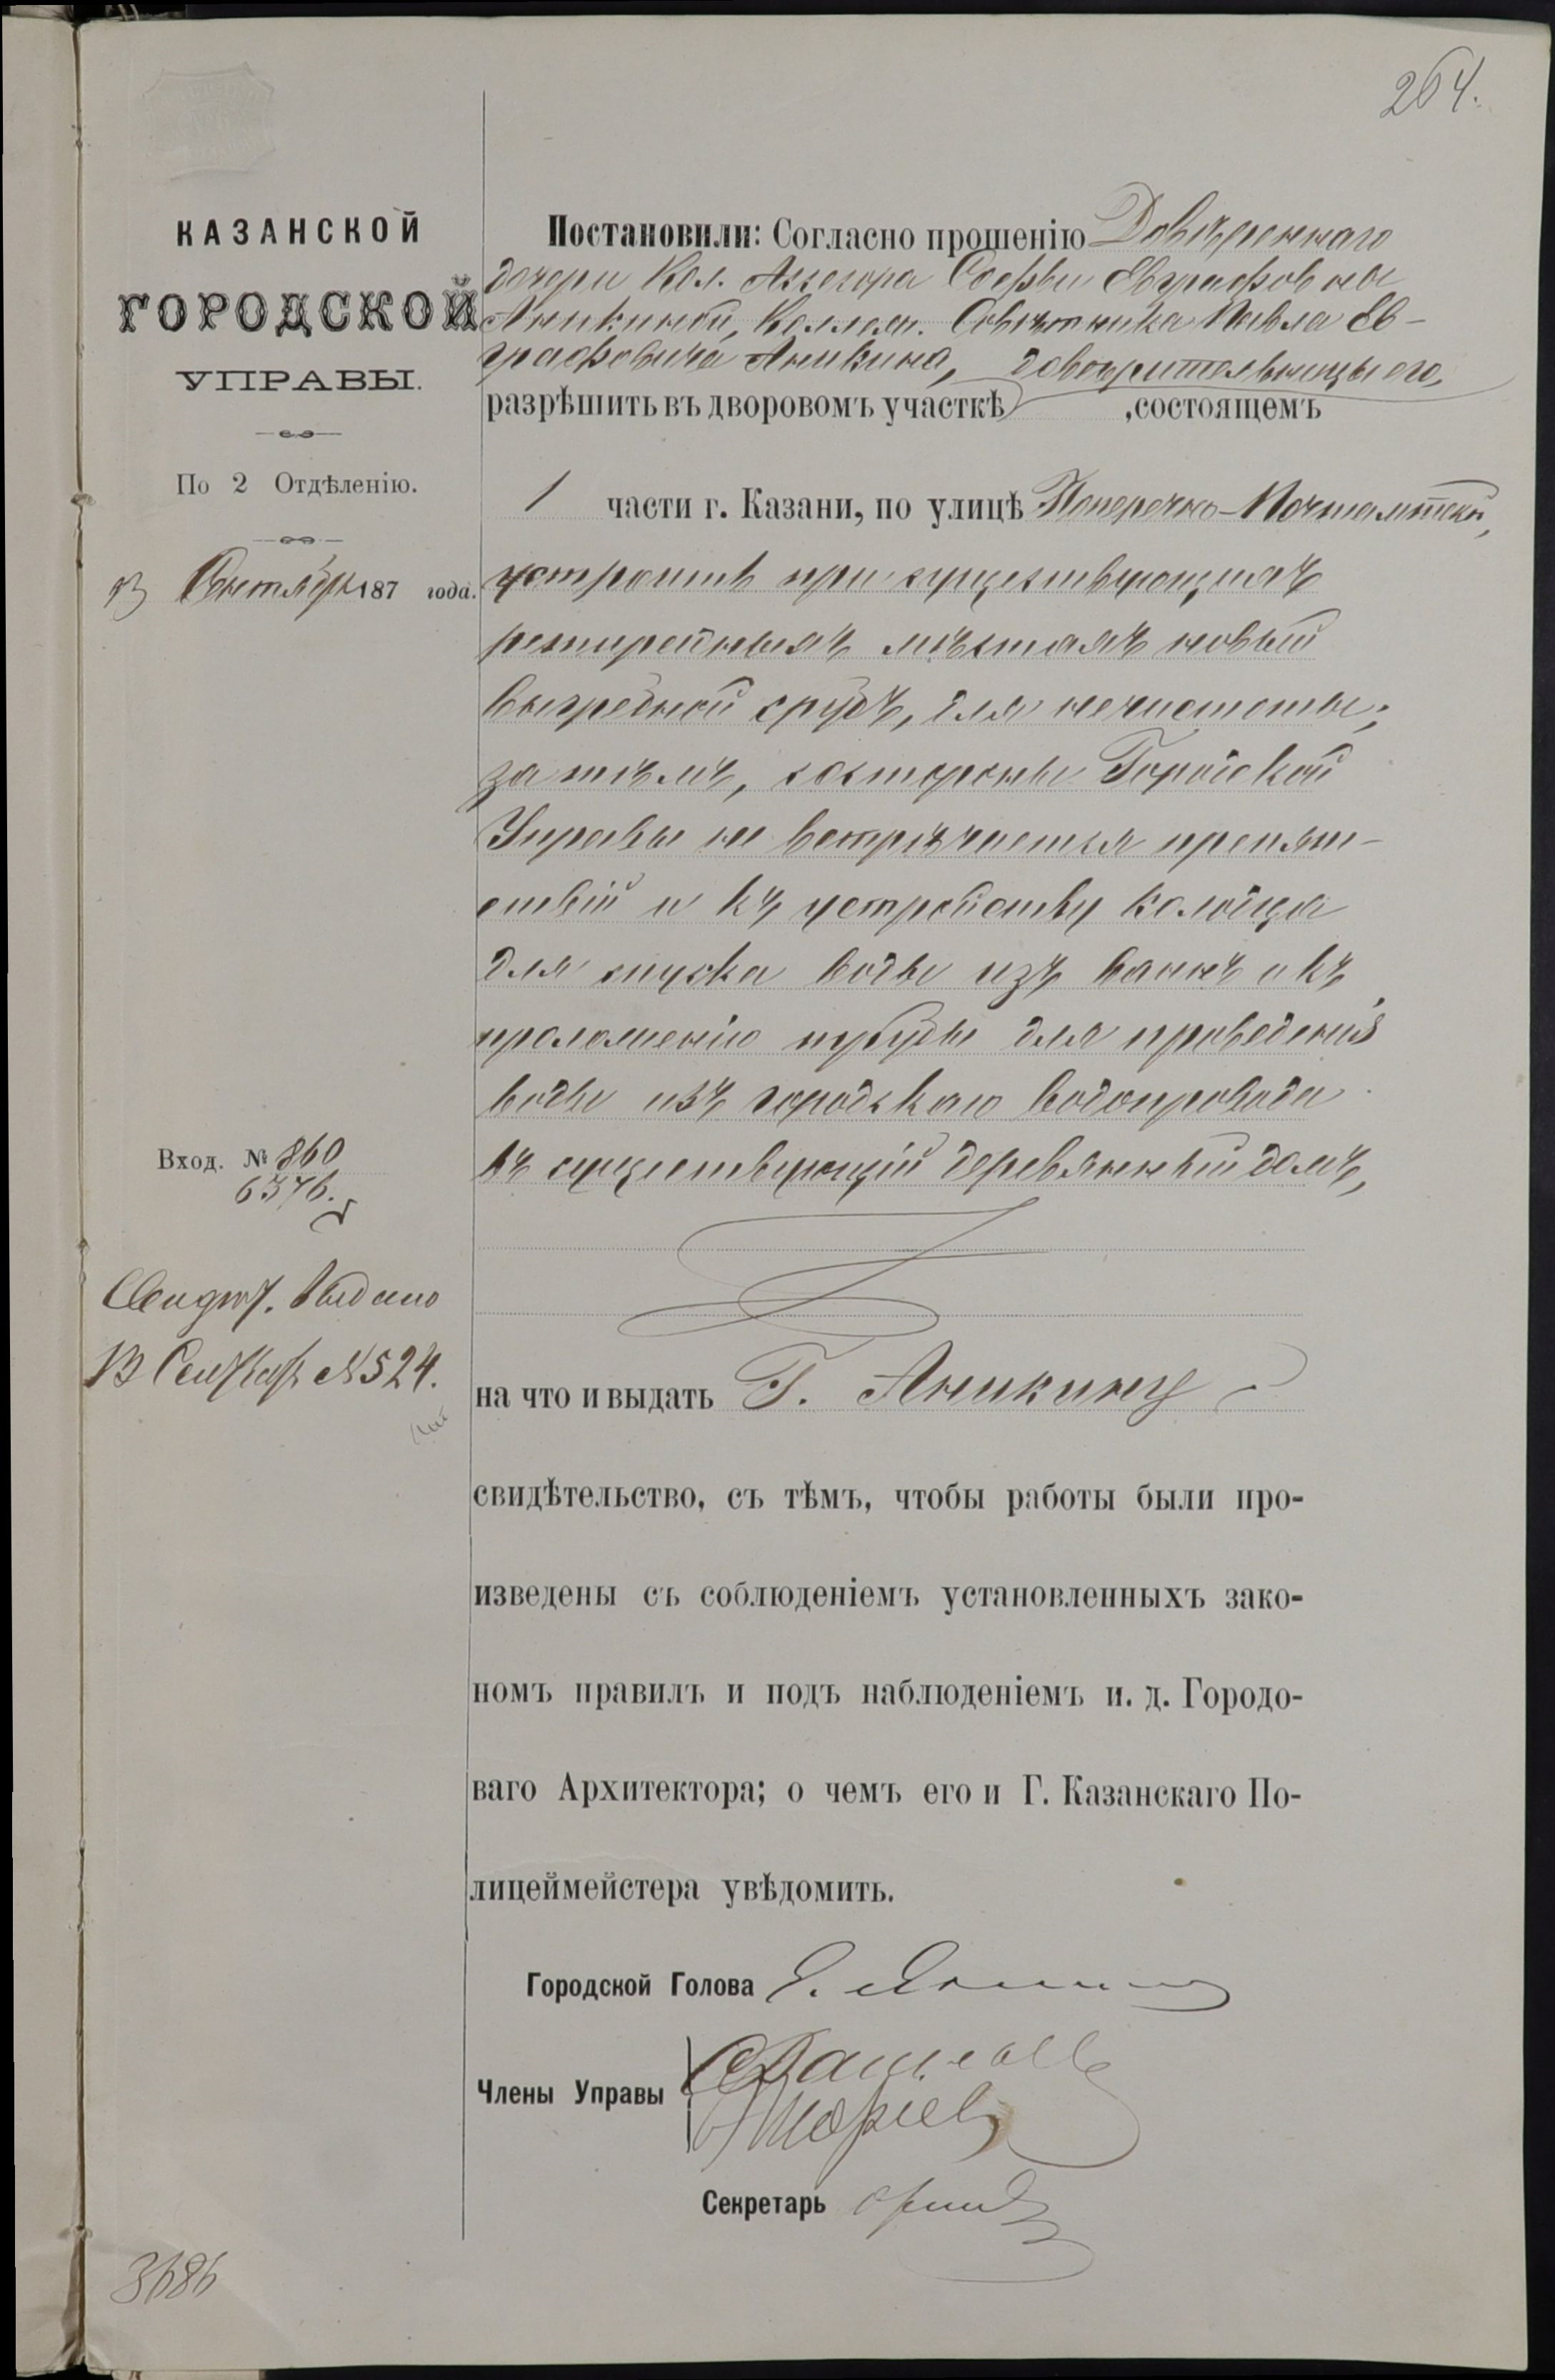 264.
КАЗАНСКОЙ
ГОРОДСКОЙ
УПРАВЫ.
По 2 Отдѣленію.
13 Сентября 187 года.
Вход. № 860
6376.
Свидѣт. выдано
13 Сентября № 524.
3686
Постановили: Согласно прошенію Довѣреннаго
дочери Кол. Ассесора Софьи Евграфовны
Аникиной, Коллеж. Совѣтника Павла Ев-
графовича Аникина, довѣрительницы его,
разрѣшить въ дворовомъ участкѣ ,состоящемъ
1 части г. Казани, по улицѣ Поперечно-Почтамтской,
устроить при существующихъ
ретирадныхъ мѣстахъ новый
выгребной срубъ, для нечистоты;
за тѣмъ, состороны Городской
Управы не встрѣчается препят-
ствій и къ устройству колодца
для спуска воды изъ ваннъ и къ
проложенію трубы для проведенія
воды изъ городскаго водопровода
въ существующій деревянный домъ,
на что и выдать Г. Аникину
свидѣтельство, съ тѣмъ, чтобы работы были про-
изведены съ соблюденіемъ установленныхъ зако-
номъ правилъ и подъ наблюденіемъ и. д. Городо-
ваго Архитектора; о чемъ его и Г. Казанскаго По-
лицеймейстера увѣдомить.
Городской Голова
Члены Управы
Секретарь